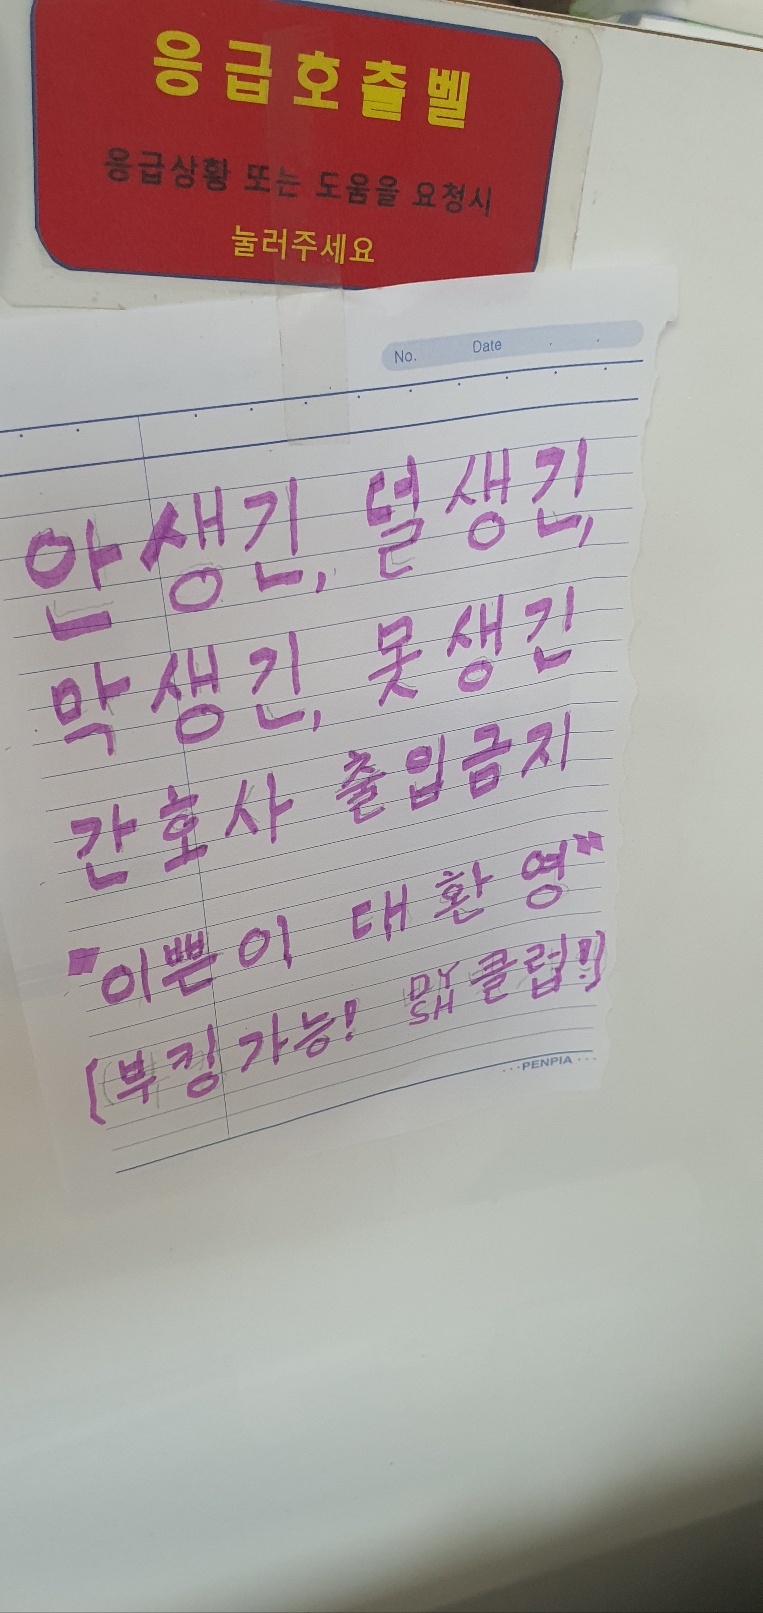 응급호출벨
응급상황 또는 도움을 요청시
눌러주세요
No. Date
안생긴, 덜생긴,
막생긴, 못생긴
간호사 출입금지
"이쁜이 대환영"
(부킹가능! DY SH 클럽!)
PENPIA